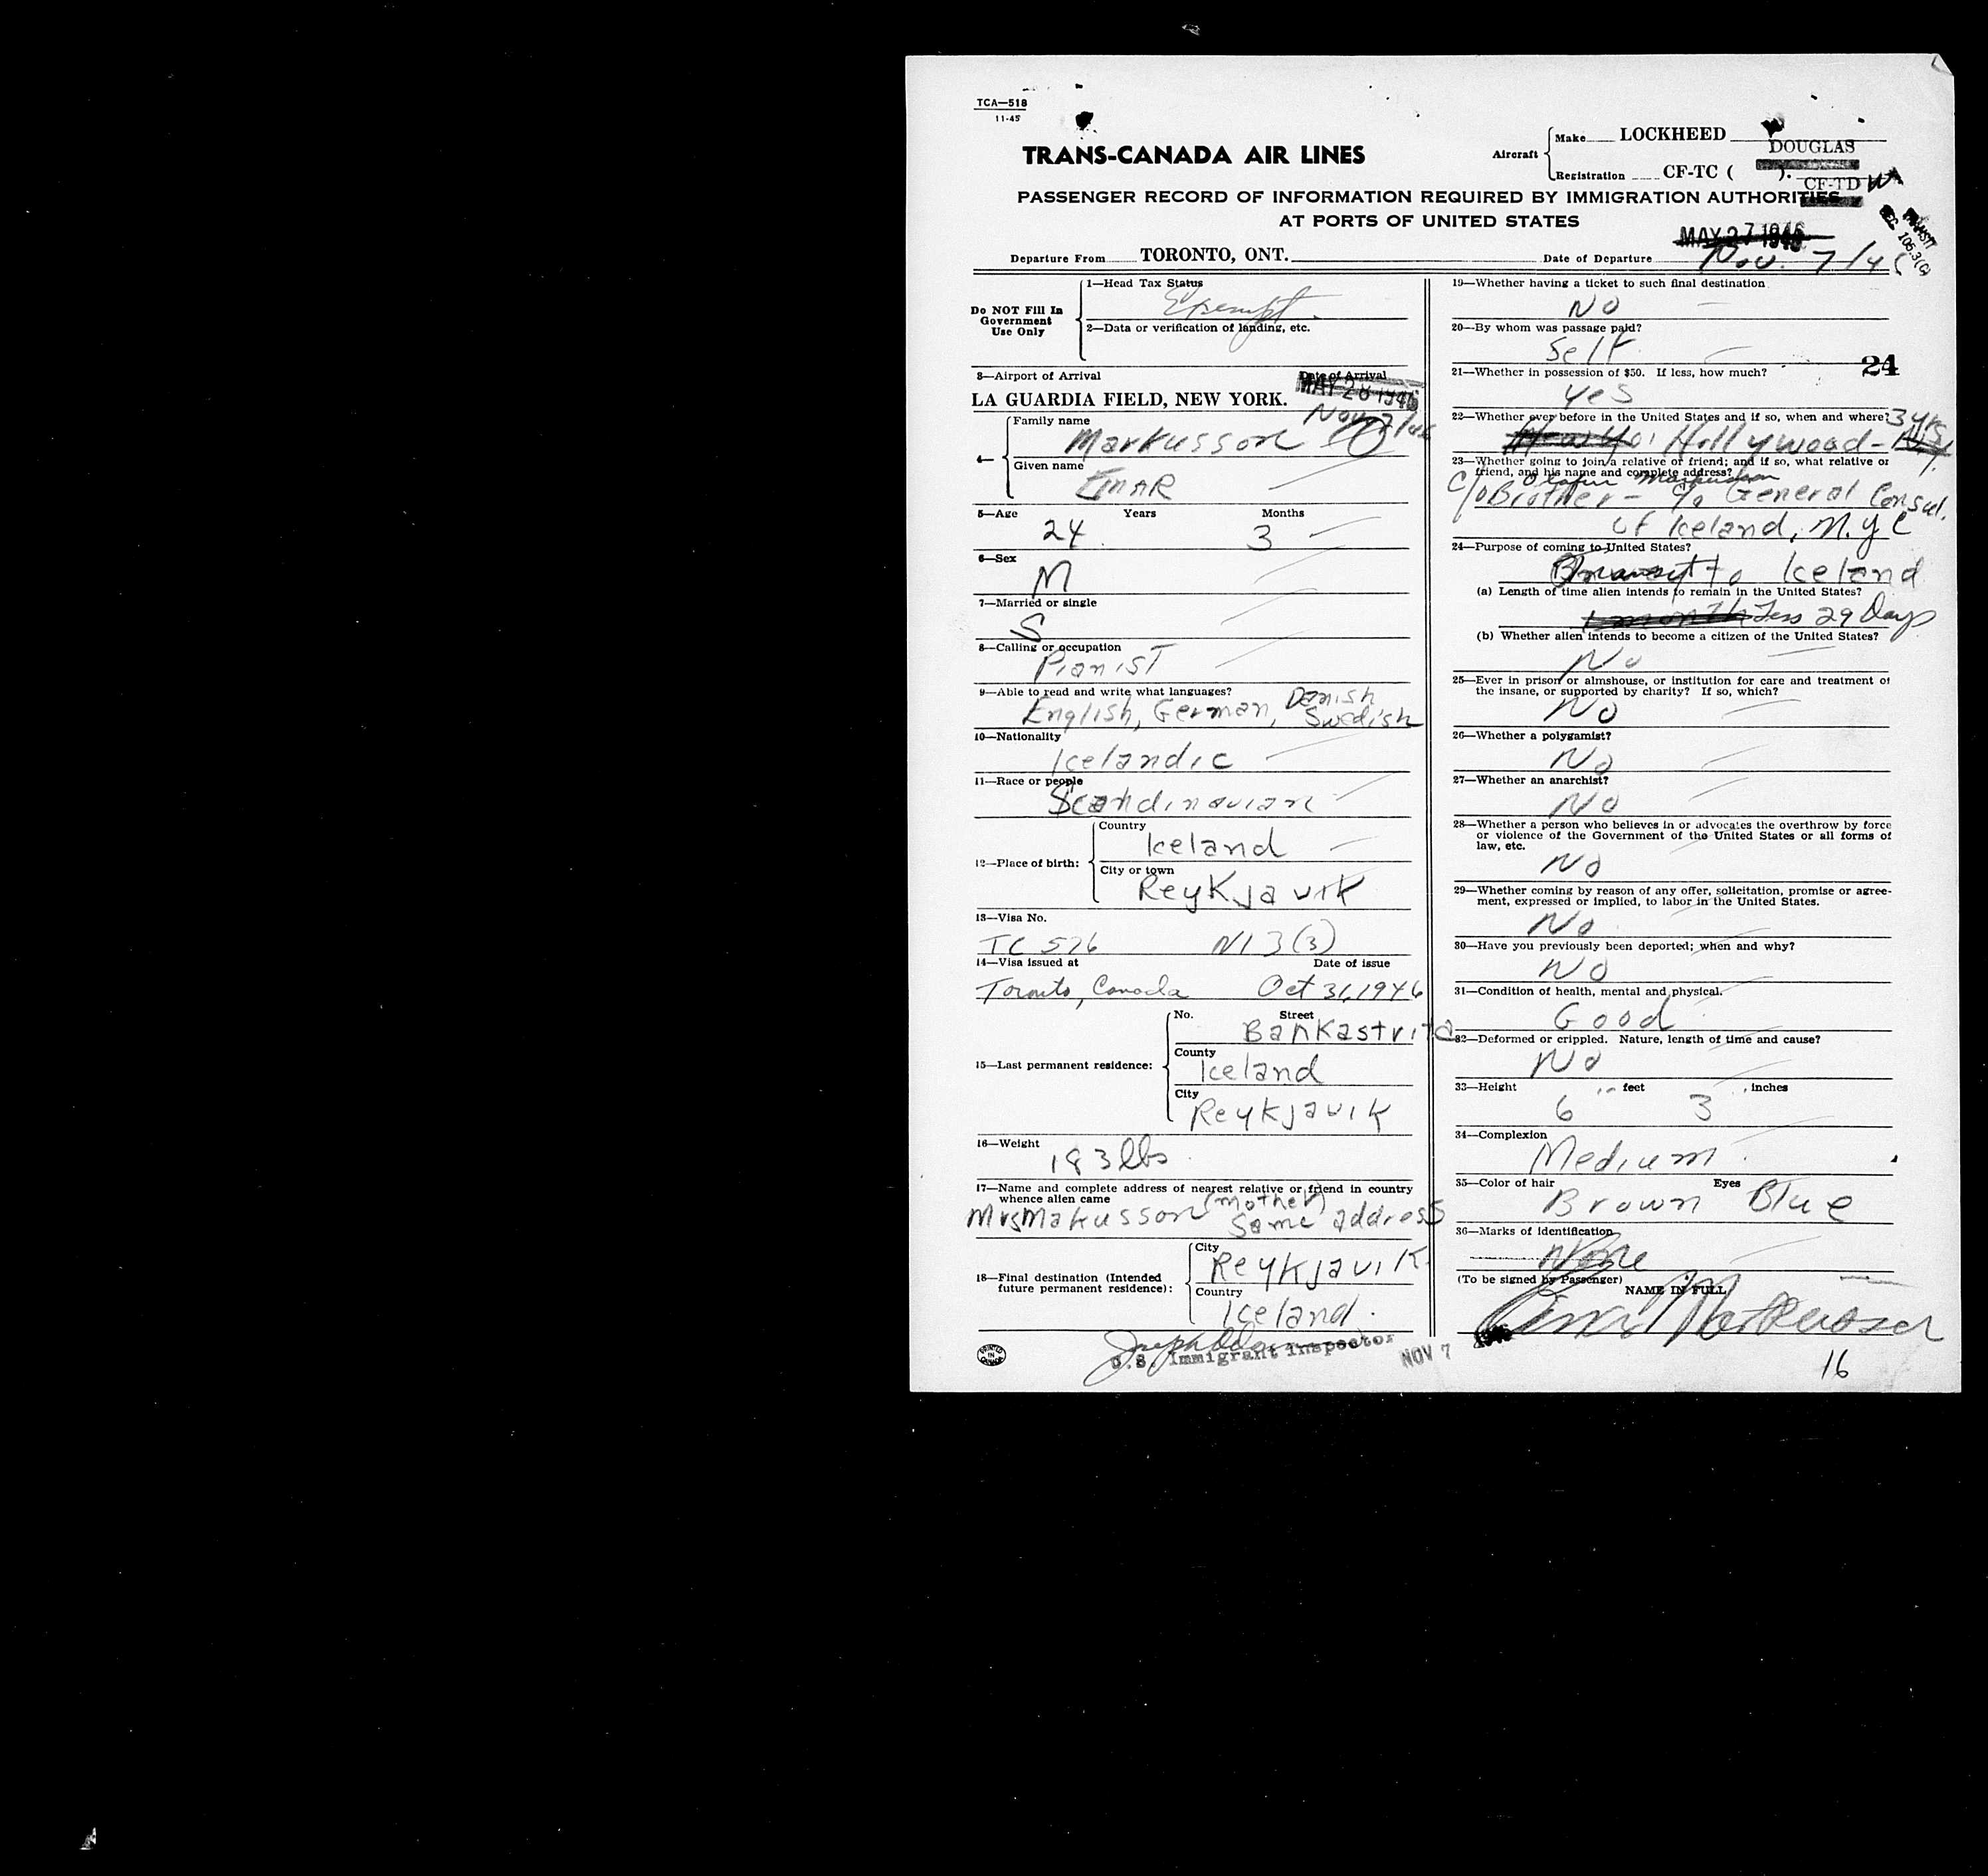 TCA—518
11-45
TRANS-CANADA AIR LINES
Aircraft
Make LOCKHEED
DOUGLAS
Registration CF-TC ( ).
CF-TD
PASSENGER RECORD OF INFORMATION REQUIRED BY IMMIGRATION AUTHORITIES
AT PORTS OF UNITED STATES
MAY 27 1946
Departure From TORONTO, ONT.
Date of Departure Nov. 7/46
Do NOT Fill In
Government
Use Only
1—Head Tax Status
Exempt
2—Data or verification of landing, etc.
3—Airport of Arrival
Date of Arrival
MAY 28 1946
LA GUARDIA FIELD, NEW YORK.
Nov 7/46
4—
Family name
Markusson
Given name
Einar
5—Age Years Months
24 3
6—Sex
M
7—Married or single
S
8—Calling or occupation
Pianist
9—Able to read and write what languages?
English, German, Danish
Swedish
10—Nationality
Icelandic
11—Race or people
Scandinavian
12—Place of birth:
Country
Iceland
City or town
Reykjavik
13—Visa No.
TC 576 N13(3)
14—Visa issued at Date of issue
Toronto, Canada Oct 31, 1946
15—Last permanent residence:
No. Street
Bankastrita
County
Iceland
City
Reykjavik
16—Weight
183 lbs
17—Name and complete address of nearest relative or friend in country
whence alien came
Mrs Makusson (mother)
Same address
18—Final destination (Intended
future permanent residence):
City
Reykjavik
Country
Iceland.
U.S. Immigrant Inspector
NOV 7 1946
PRINTED
IN
CANADA
19—Whether having a ticket to such final destination
No
20—By whom was passage paid?
Self
24
21—Whether in possession of $50. If less, how much?
yes
22—Whether ever before in the United States and if so, when and where?
3 yrs
Hollywood - N.Y.
23—Whether going to join a relative or friend; and if so, what relative or
friend, and his name and complete address?
Olafur Markusson
c/o Brother - c/o General Consul.
of Iceland, N.Y.C
24—Purpose of coming to United States?
Transit to Iceland
(a) Length of time alien intends to remain in the United States?
1 month Less 29 Days
(b) Whether alien intends to become a citizen of the United States?
No
25—Ever in prison or almshouse, or institution for care and treatment of
the insane, or supported by charity? If so, which?
No
26—Whether a polygamist?
No
27—Whether an anarchist?
No
28—Whether a person who believes in or advocates the overthrow by force
or violence of the Government of the United States or all forms of
law, etc.
No
29—Whether coming by reason of any offer, solicitation, promise or agree-
ment, expressed or implied, to labor in the United States.
No
30—Have you previously been deported; when and why?
No
31—Condition of health, mental and physical.
Good
32—Deformed or crippled. Nature, length of time and cause?
No
33—Height feet , inches
6 3
34—Complexion
Medium
35—Color of hair Eyes
Brown Blue
36—Marks of identification
None
(To be signed by Passenger)
NAME IN FULL
Einar Markusson
16